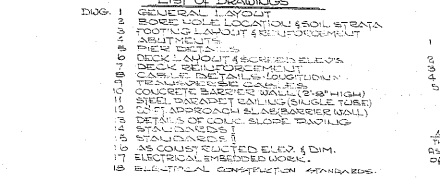 LIST OF DRAWINGS
DWG. 1 GENERAL LAYOUT
2 BORE HOLE LOCATION & SOIL STRATA
3 FOOTING LAYOUT & REINFORCEMENT
4 ABUTMENTS
5 PIER DETAILS
6 DECK LAYOUT & SCREED ELEV'S
7 DECK REINFORCEMENT
8 CABLE DETAILS-LONGITUDINAL
9 TRANSVERSE CABLES
10 CONCRETE BARRIER WALL (2'-8" HIGH)
11 STEEL PARAPET RAILING (SINGLE TUBE)
12 20 FT APPROACH SLAB (BARRIER WALL)
13 DETAILS OF CONC. SLOPE PAVING
14 STANDARDS I
15 STANDARDS II
16 AS CONSTRUCTED ELEV. & DIM.
17 ELECTRICAL EMBEDDED WORK.
18 ELECTRICAL CONSTRUCTION STANDARDS.
1
2
3
4
5